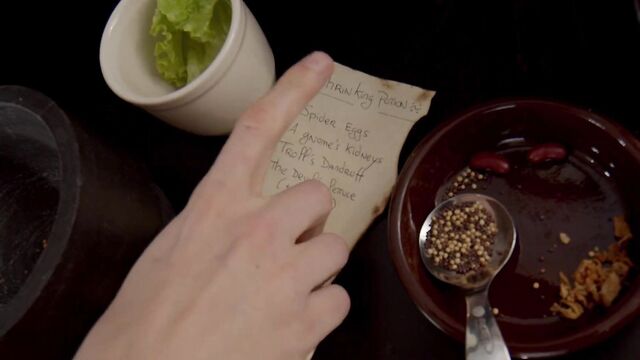 SHRINKING POTION
Spider Eggs
A gnome's Kidneys
Troll's Dandruff
The Devil's Lettuce